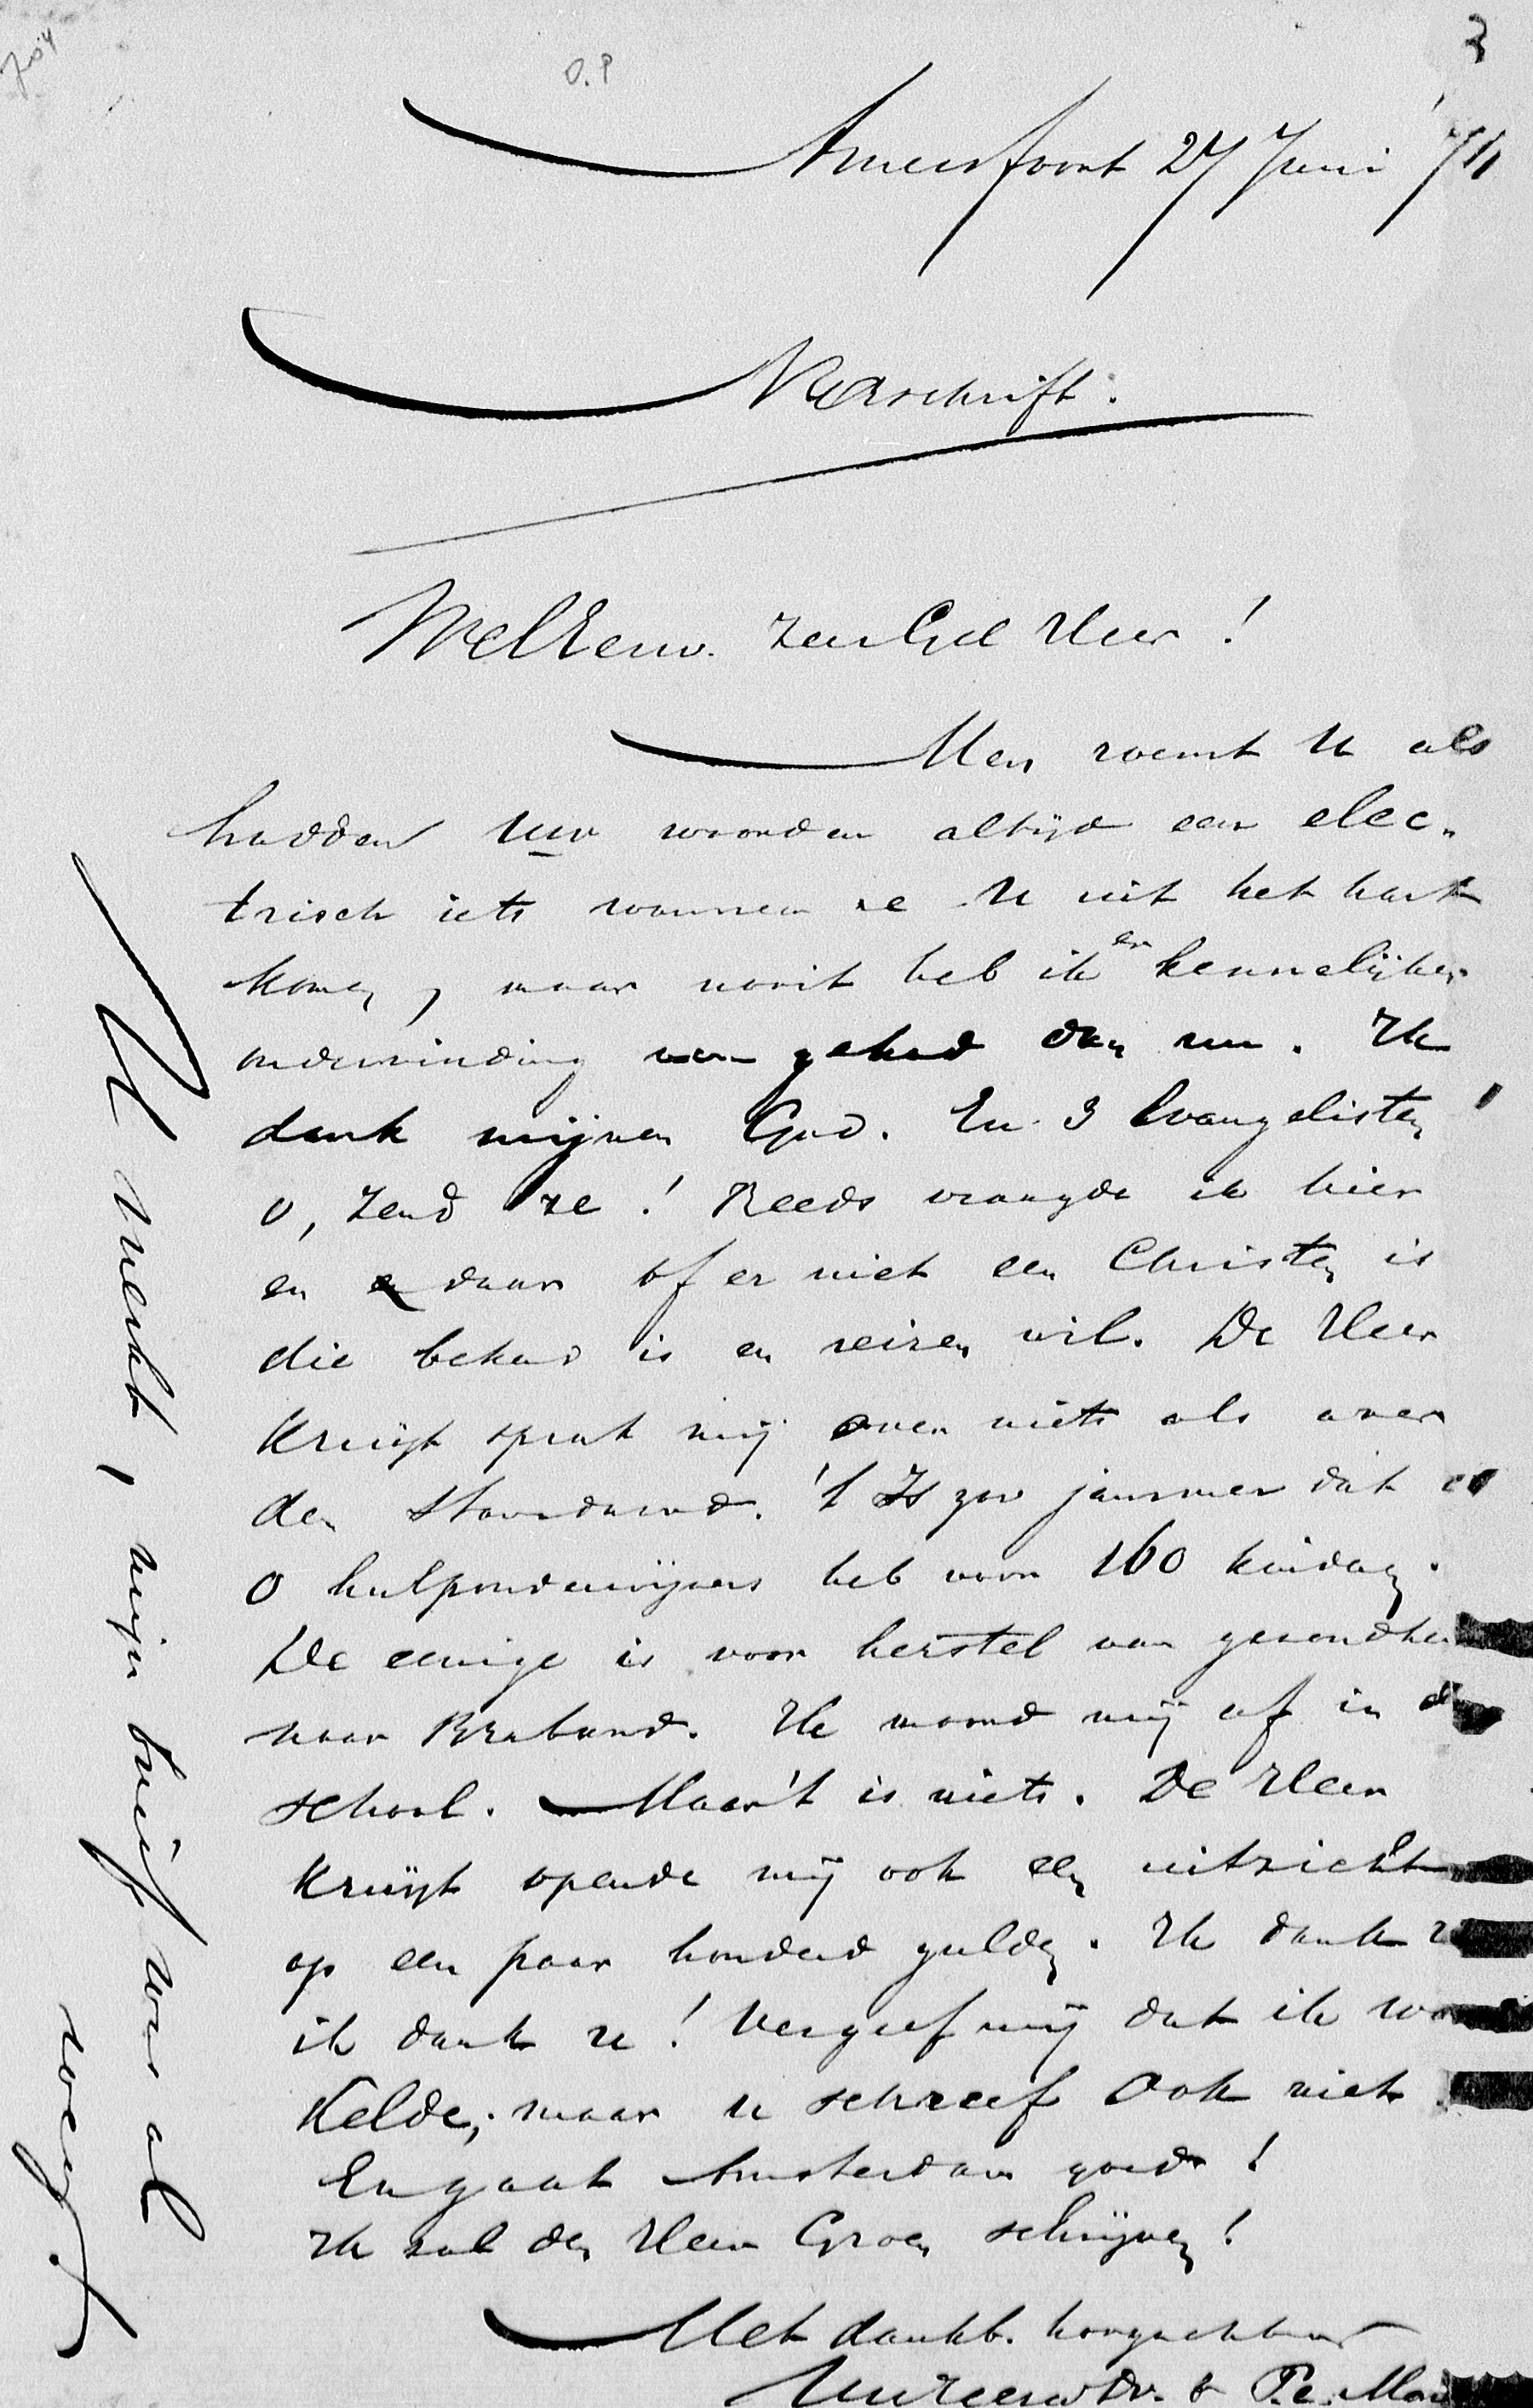 704
O.P
3
Amersfoort 27 Juni '71
Naschrift.
WelEerw. ZeerGel Heer!
Men roemt U als
hadden uw woorden altijd een elec-
trisch iets wanneer ze U uit het hart
komen, maar nooit heb ik er kennelijker
ondervinding van gehad dan nu. Ik
dank mijnen God. En 3 Evangelisten!
O, zend ze! Reeds vraagde ik hier
en daar of er niet een Christen is
die bekend is en reizen wil. De Heer
Kruijt sprak mij over niets als over
den Standaard. 't Is zoo jammer dat ik
0 hulponderwijzers heb voor 160 kinderen.
De eenige is voor herstel van
naar Braband. Ik
mij af in
school. Maar 't is niets. De Heer
Kruijt opende mij ook een uitzicht
op een paar honderd gulden. Ik dank
ik dank u! Vergeef mij dat ik
maar u schreef Ook niet
En gaat Amsterdam goed!
Ik zal den Heer Groen schrijven!
Met dankb. hoogachting
UwEerw Dv. &
U merkt, mijn brief was al
weg